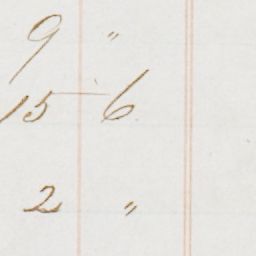 9 "
15 6
2 "